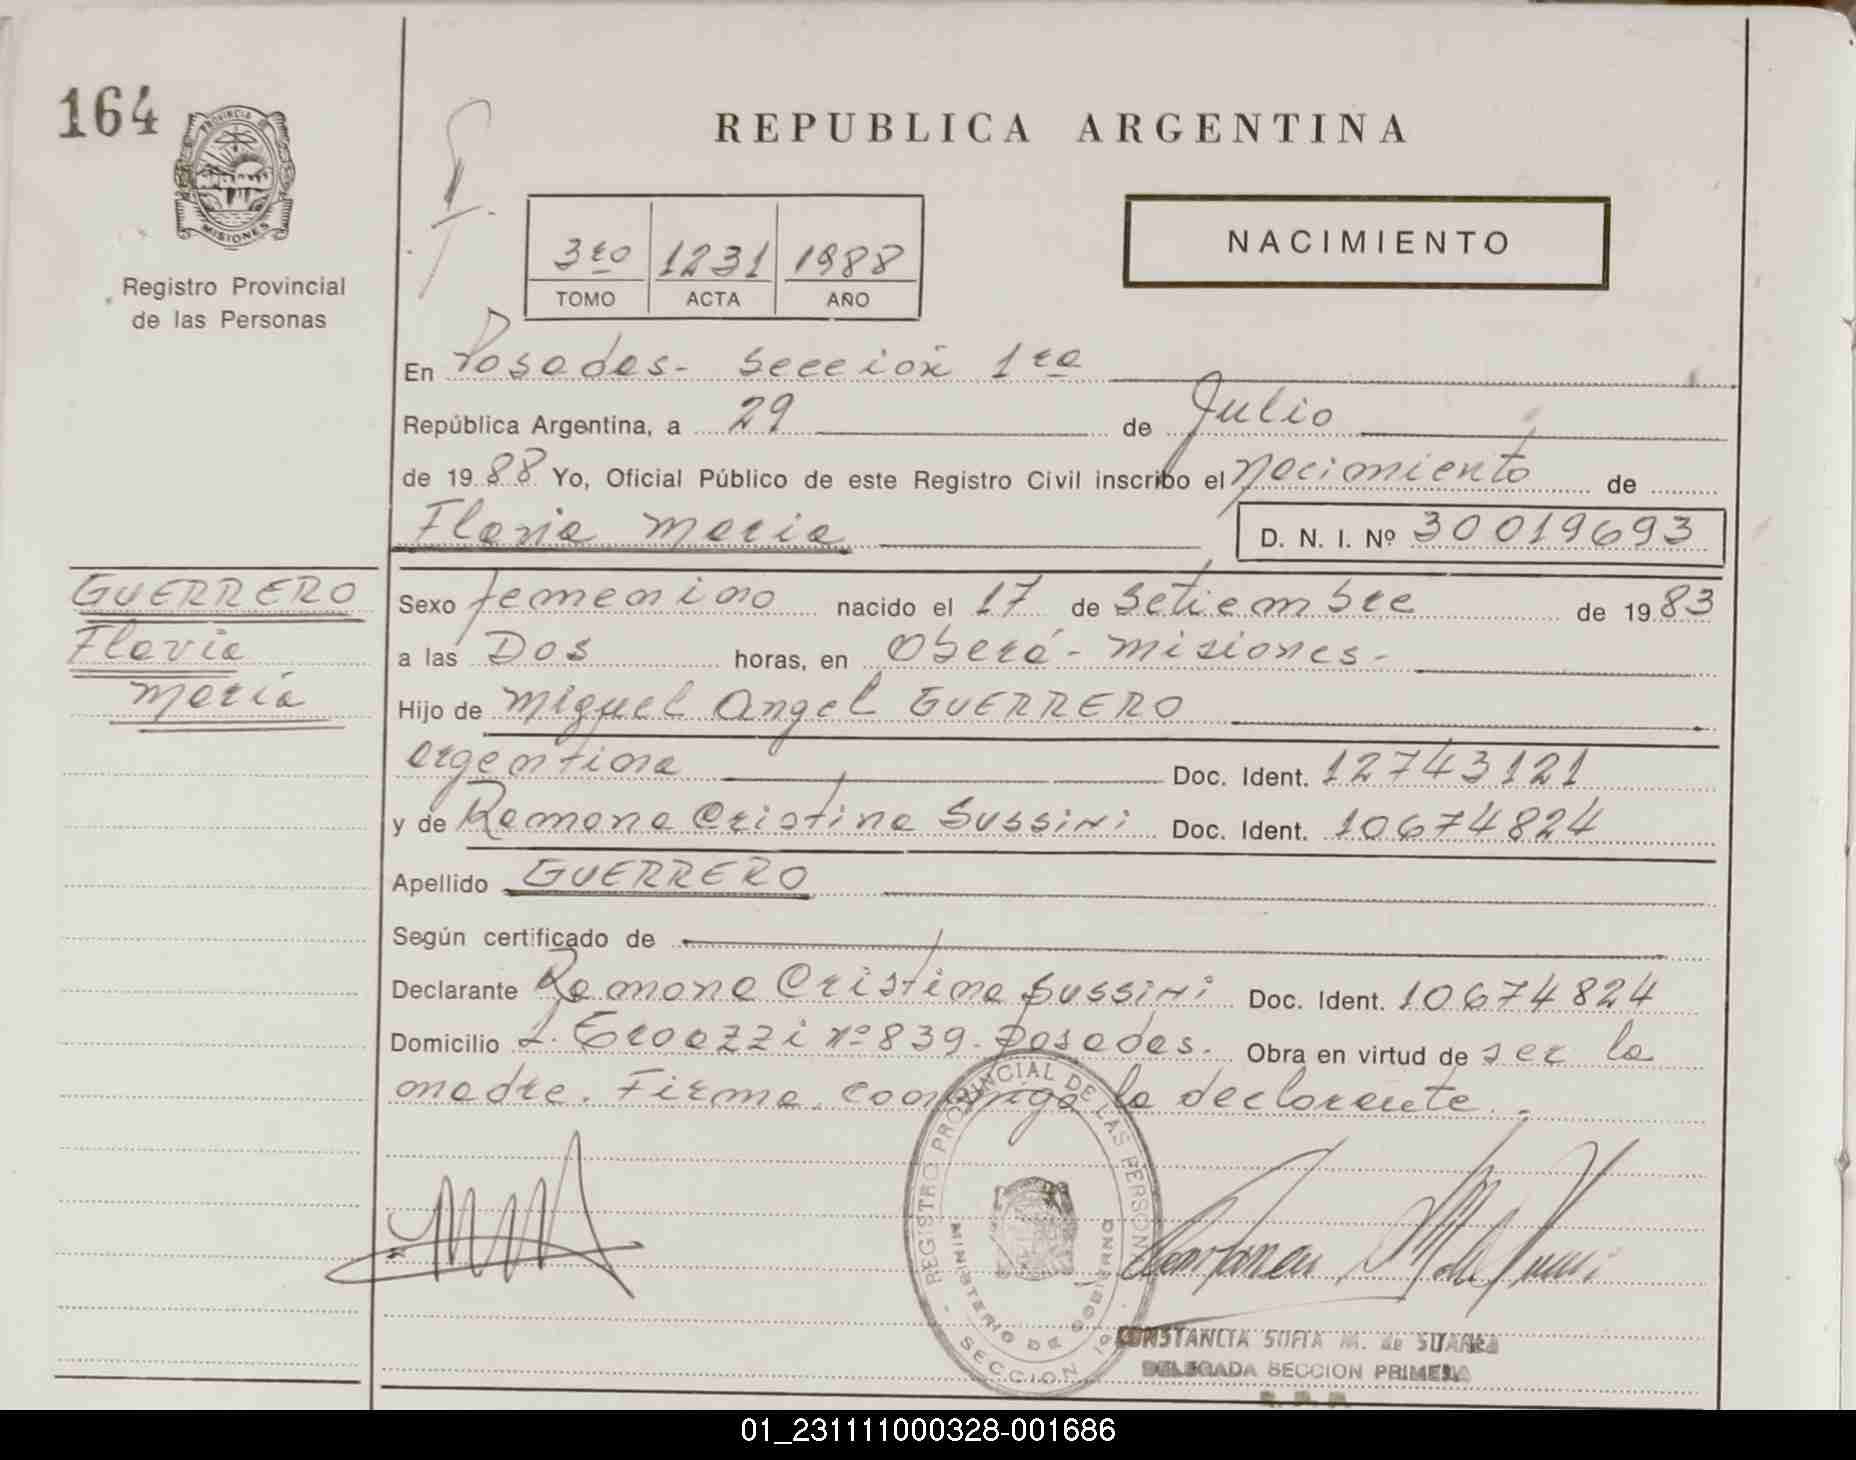 164
PROVINCIA D
MISIONES
Registro Provincial
de las Personas
REPUBLICA ARGENTINA
3ro 1231 1988
TOMO ACTA AÑO
NACIMIENTO
En Posadas - Sección 1ra
República Argentina, a 29 de Julio
de 1988 Yo, Oficial Público de este Registro Civil inscribo el Nacimiento de
Flavia Maria D. N. I. Nº 30019693
GUERRERO
Flavia
María
Sexo femenino nacido el 17 de Setiembre de 1983
a las Dos horas, en Oberá - Misiones -
Hijo de Miguel Angel GUERRERO
argentina Doc. Ident. 12743121
y de Ramona Cristina Sussini Doc. Ident. 10674824
Apellido GUERRERO
Según certificado de
Declarante Ramona Cristina Sussini Doc. Ident. 10674824
Domicilio nº 839 - Posadas. Obra en virtud de ser la
madre. Firma conmigo la declarante.
REGISTRO PROVINCIAL DE LAS PERSONAS
MINISTERIO DE GOBIERNO
SECCION 1ª
CONSTANCIA SOFIA M. de
DELEGADA SECCION PRIMERA
R. P. P.
01_231111000328-001686